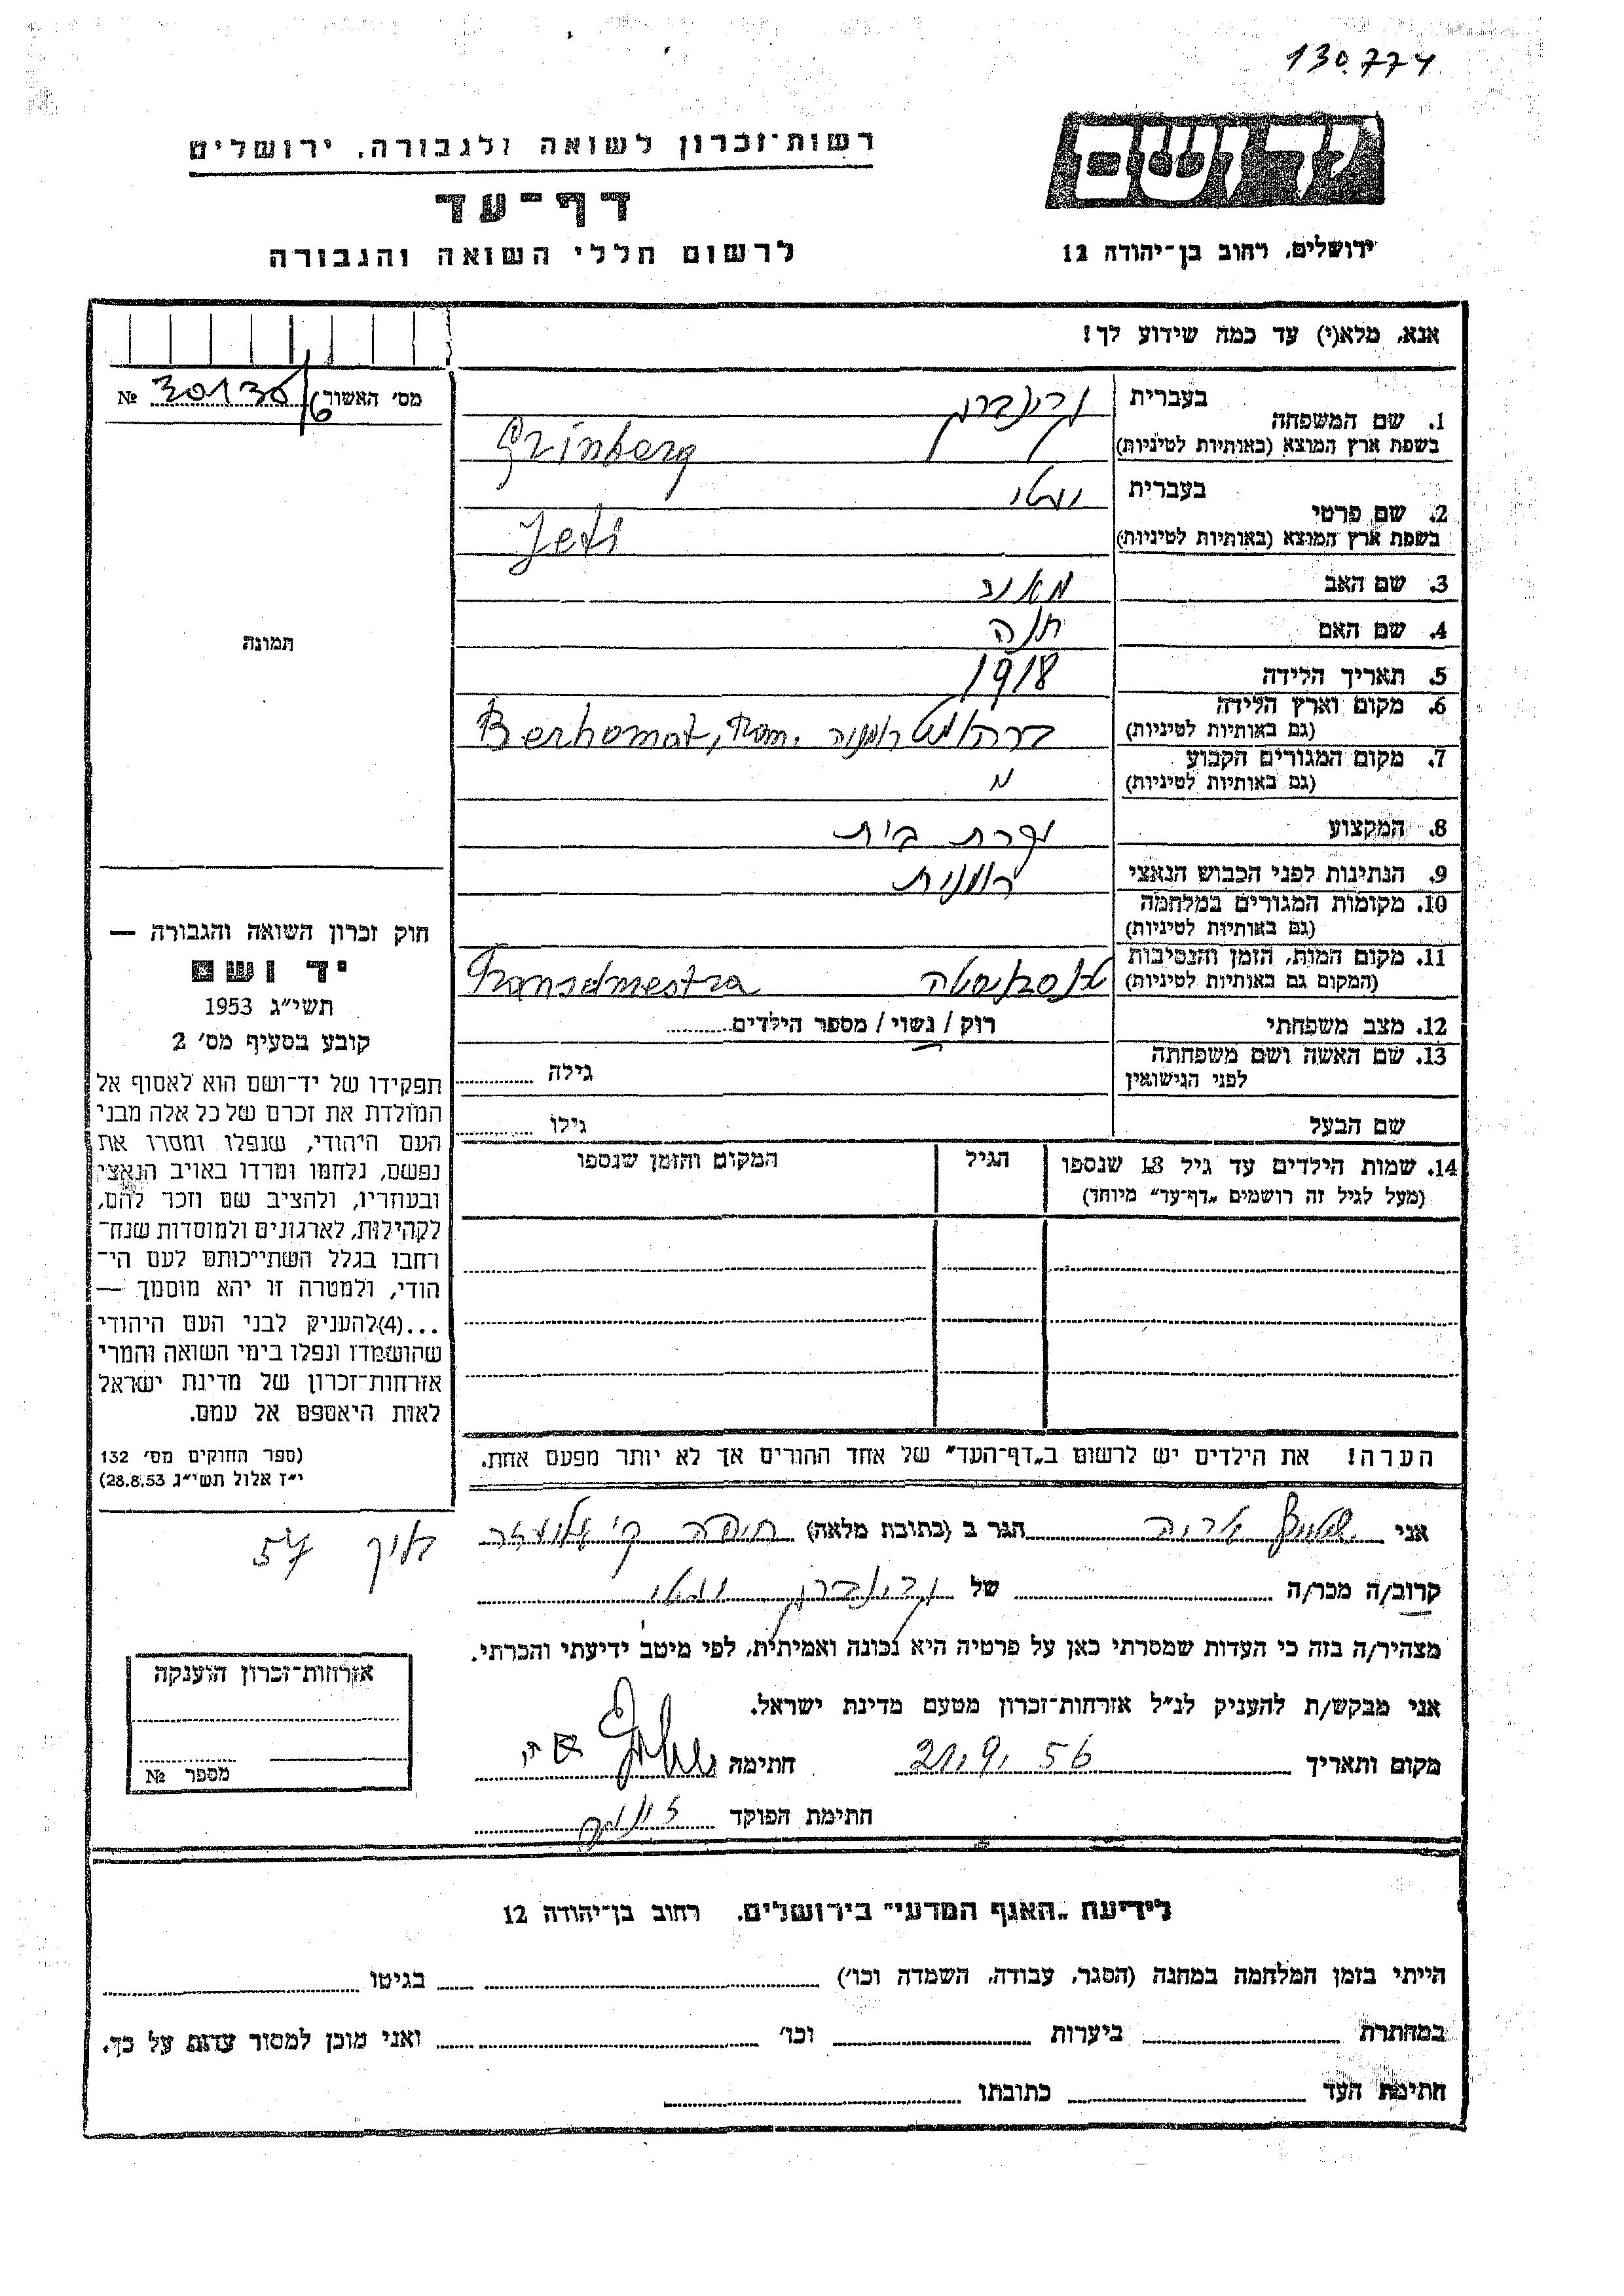 130.774
רשות־זכרון לשואה ולגבורה, ירושלים
דף־עד
לרשום חללי השואה והגבורה
יד ושם
ירושלים, רחוב בן־יהודה 12
אנא, מלא(י) עד כמה שידוע לך!
מס׳ האשור 30130/6 №
1. שם המשפחה
בעברית גרינברג
בשפת ארץ המוצא (באותיות לטיניות) Grinberg
2. שם פרטי
בעברית יטי
בשפת ארץ המוצא (באותיות לטיניות) Jeti
3. שם האב
4. שם האם חנה
5. תאריך הלידה 1918
6. מקום וארץ הלידה
(גם באותיות לטיניות) ברהומט רומניה Berhomat, Rom.
7. מקום המגורים הקבוע
(גם באותיות לטיניות)
8. המקצוע עקרת בית
9. הנתינות לפני הכבוש הנאצי רומנית
10. מקומות המגורים במלחמה
(גם באותיות לטיניות)
11. מקום המות, הזמן והנסיבות
(המקום גם באותיות לטיניות) Transdnestra
12. מצב משפחתי רוק / נשוי / מספר הילדים
13. שם האשה ושם משפחתה
לפני הנישואין גילה
שם הבעל גילו
14. שמות הילדים עד גיל 18 שנספו
(מעל לגיל זה רושמים „דף־עד״ מיוחד)
הגיל
המקום והזמן שנספו
הערה! את הילדים יש לרשום ב„דף־העד״ של אחד ההורים אך לא יותר מפעם אחת.
תמונה
חוק זכרון השואה והגבורה —
יד ושם
תשי״ג 1953
קובע בסעיף מס׳ 2
תפקידו של יד־ושם הוא לאסוף אל
המולדת את זכרם של כל אלה מבני
העם היהודי, שנפלו ומסרו את
נפשם, נלחמו ומרדו באויב הנאצי
ובעוזריו, ולהציב שם וזכר להם,
לקהילות, לארגונים ולמוסדות שנח־
רחבו בגלל השתייכותם לעם הי־
הודי, ולמטרה זו יהא מוסמך —
...(4)להעניק לבני העם היהודי
שהושמדו ונפלו בימי השואה והמרי
אזרחות־זכרון של מדינת ישראל
לאות היאספם אל עמם.
(ספר החוקים מס׳ 132
י״ז אלול תשי״ג 28.8.53)
אני הגר ב (כתובת מלאה) חיפה
57
קרוב/ה מכר/ה של גרינברג יטי
מצהיר/ה בזה כי העדות שמסרתי כאן על פרטיה היא נכונה ואמיתית, לפי מיטב ידיעתי והכרתי.
אני מבקש/ת להעניק לנ״ל אזרחות־זכרון מטעם מדינת ישראל.
מקום ותאריך 21.9.56 חתימה
חתימת הפוקד
אזרחות־זכרון הוענקה
מספר №
לידיעת „האגף המדעי״ בירושלים, רחוב בן־יהודה 12
הייתי בזמן המלחמה במחנה (הסגר, עבודה, השמדה וכו׳) בגיטו
במחתרת ביערות וכו׳ ואני מוכן למסור עדות על כך.
חתימת העד כתובתו